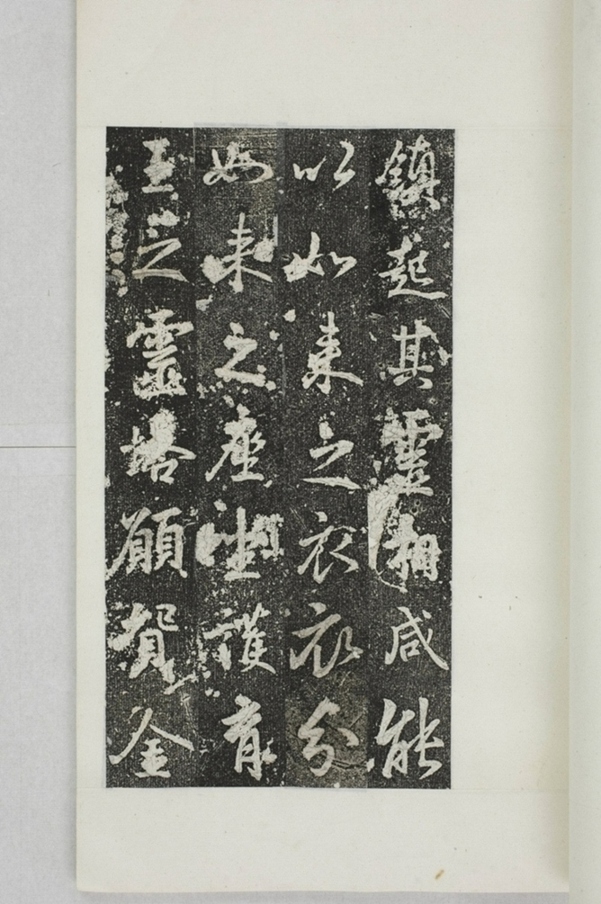 鎮起其靈相咸能
以如来之衣衣分
如来之座坐護育
王之靈塔願賀金